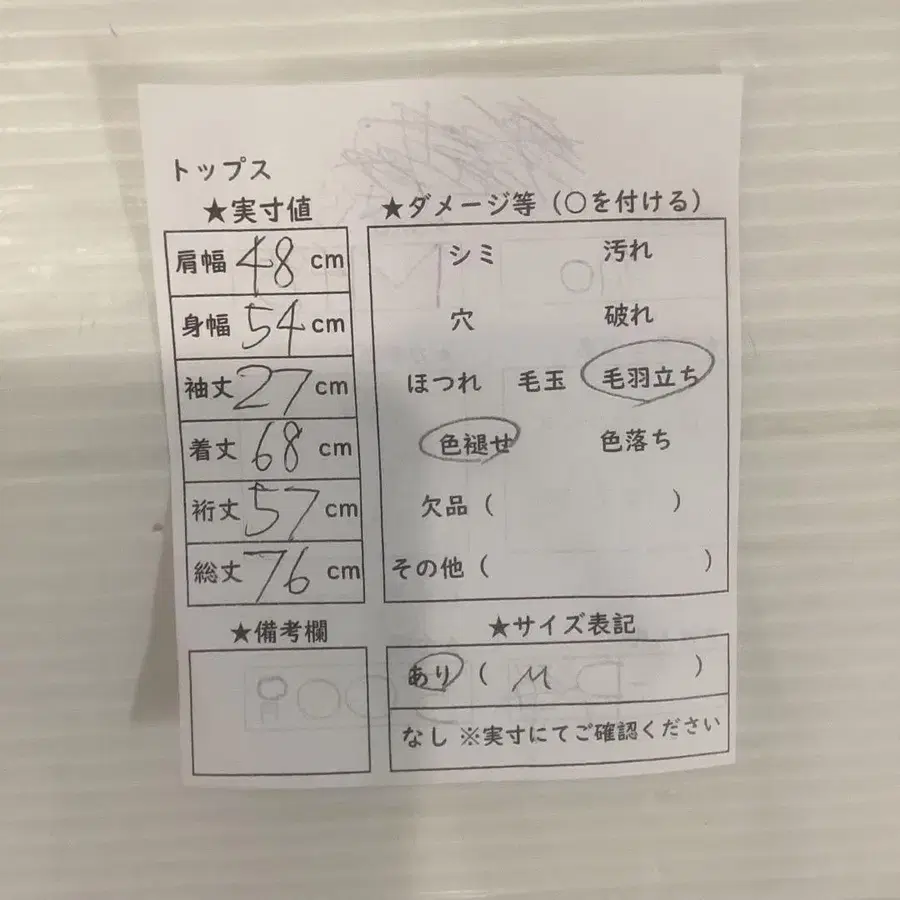 トップス
★実寸値
肩幅 48 cm
身幅 54 cm
袖丈 27 cm
着丈 68 cm
裄丈 57 cm
総丈 76 cm
★備考欄
★ダメージ等（○を付ける）
シミ 汚れ
穴 破れ
ほつれ 毛玉 毛羽立ち
色褪せ 色落ち
欠品（ ）
その他（ ）
★サイズ表記
あり（ M ）
なし ※実寸にてご確認ください